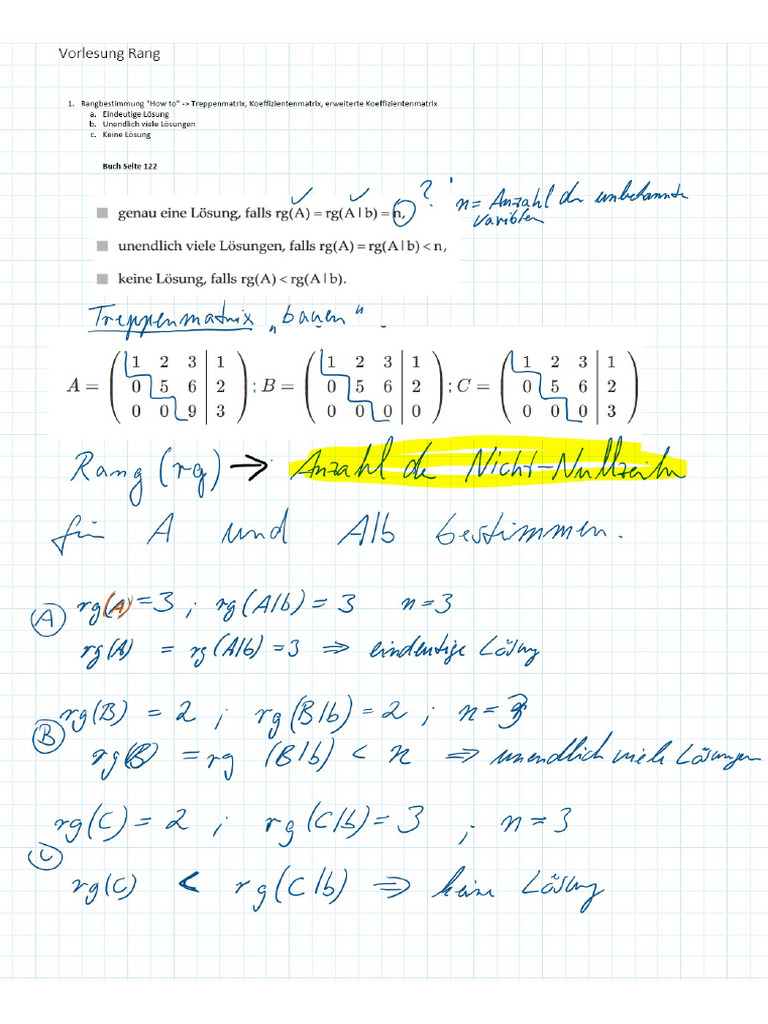 Vorlesung Rang
1. Rangbestimmung "How to" -> Treppenmatrix, Koeffizientenmatrix, erweiterte Koeffizientenmatrix
a. Eindeutige Lösung
b. Unendlich viele Lösungen
c. Keine Lösung
Buch Seite 122
genau eine Lösung, falls rg(A) = rg(A | b) = n, ? n = Anzahl der unbekannte
Variablen
unendlich viele Lösungen, falls rg(A) = rg(A | b) < n,
keine Lösung, falls rg(A) < rg(A | b).
Treppenmatrix „bauen"
1 2 3 | 1 1 2 3 | 1 1 2 3 | 1
A = 0 5 6 | 2 ; B = 0 5 6 | 2 ; C = 0 5 6 | 2
0 0 9 | 3 0 0 0 | 0 0 0 0 | 3
Rang (rg) → Anzahl de Nicht-Nullzeiln
für A und A|b bestimmen.
A rg(A) = 3 ; rg(A|b) = 3 n = 3
rg(A) = rg(A|b) = 3 ⇒ eindeutige Lösung
rg(B) = 2 ; rg(B|b) = 2 ; n = 3
B rg(B) = rg (B|b) < n ⇒ unendlich viele Lösungen
rg(C) = 2 ; rg(C|b) = 3 ; n = 3
C rg(C) < rg(C|b) ⇒ keine Lösung